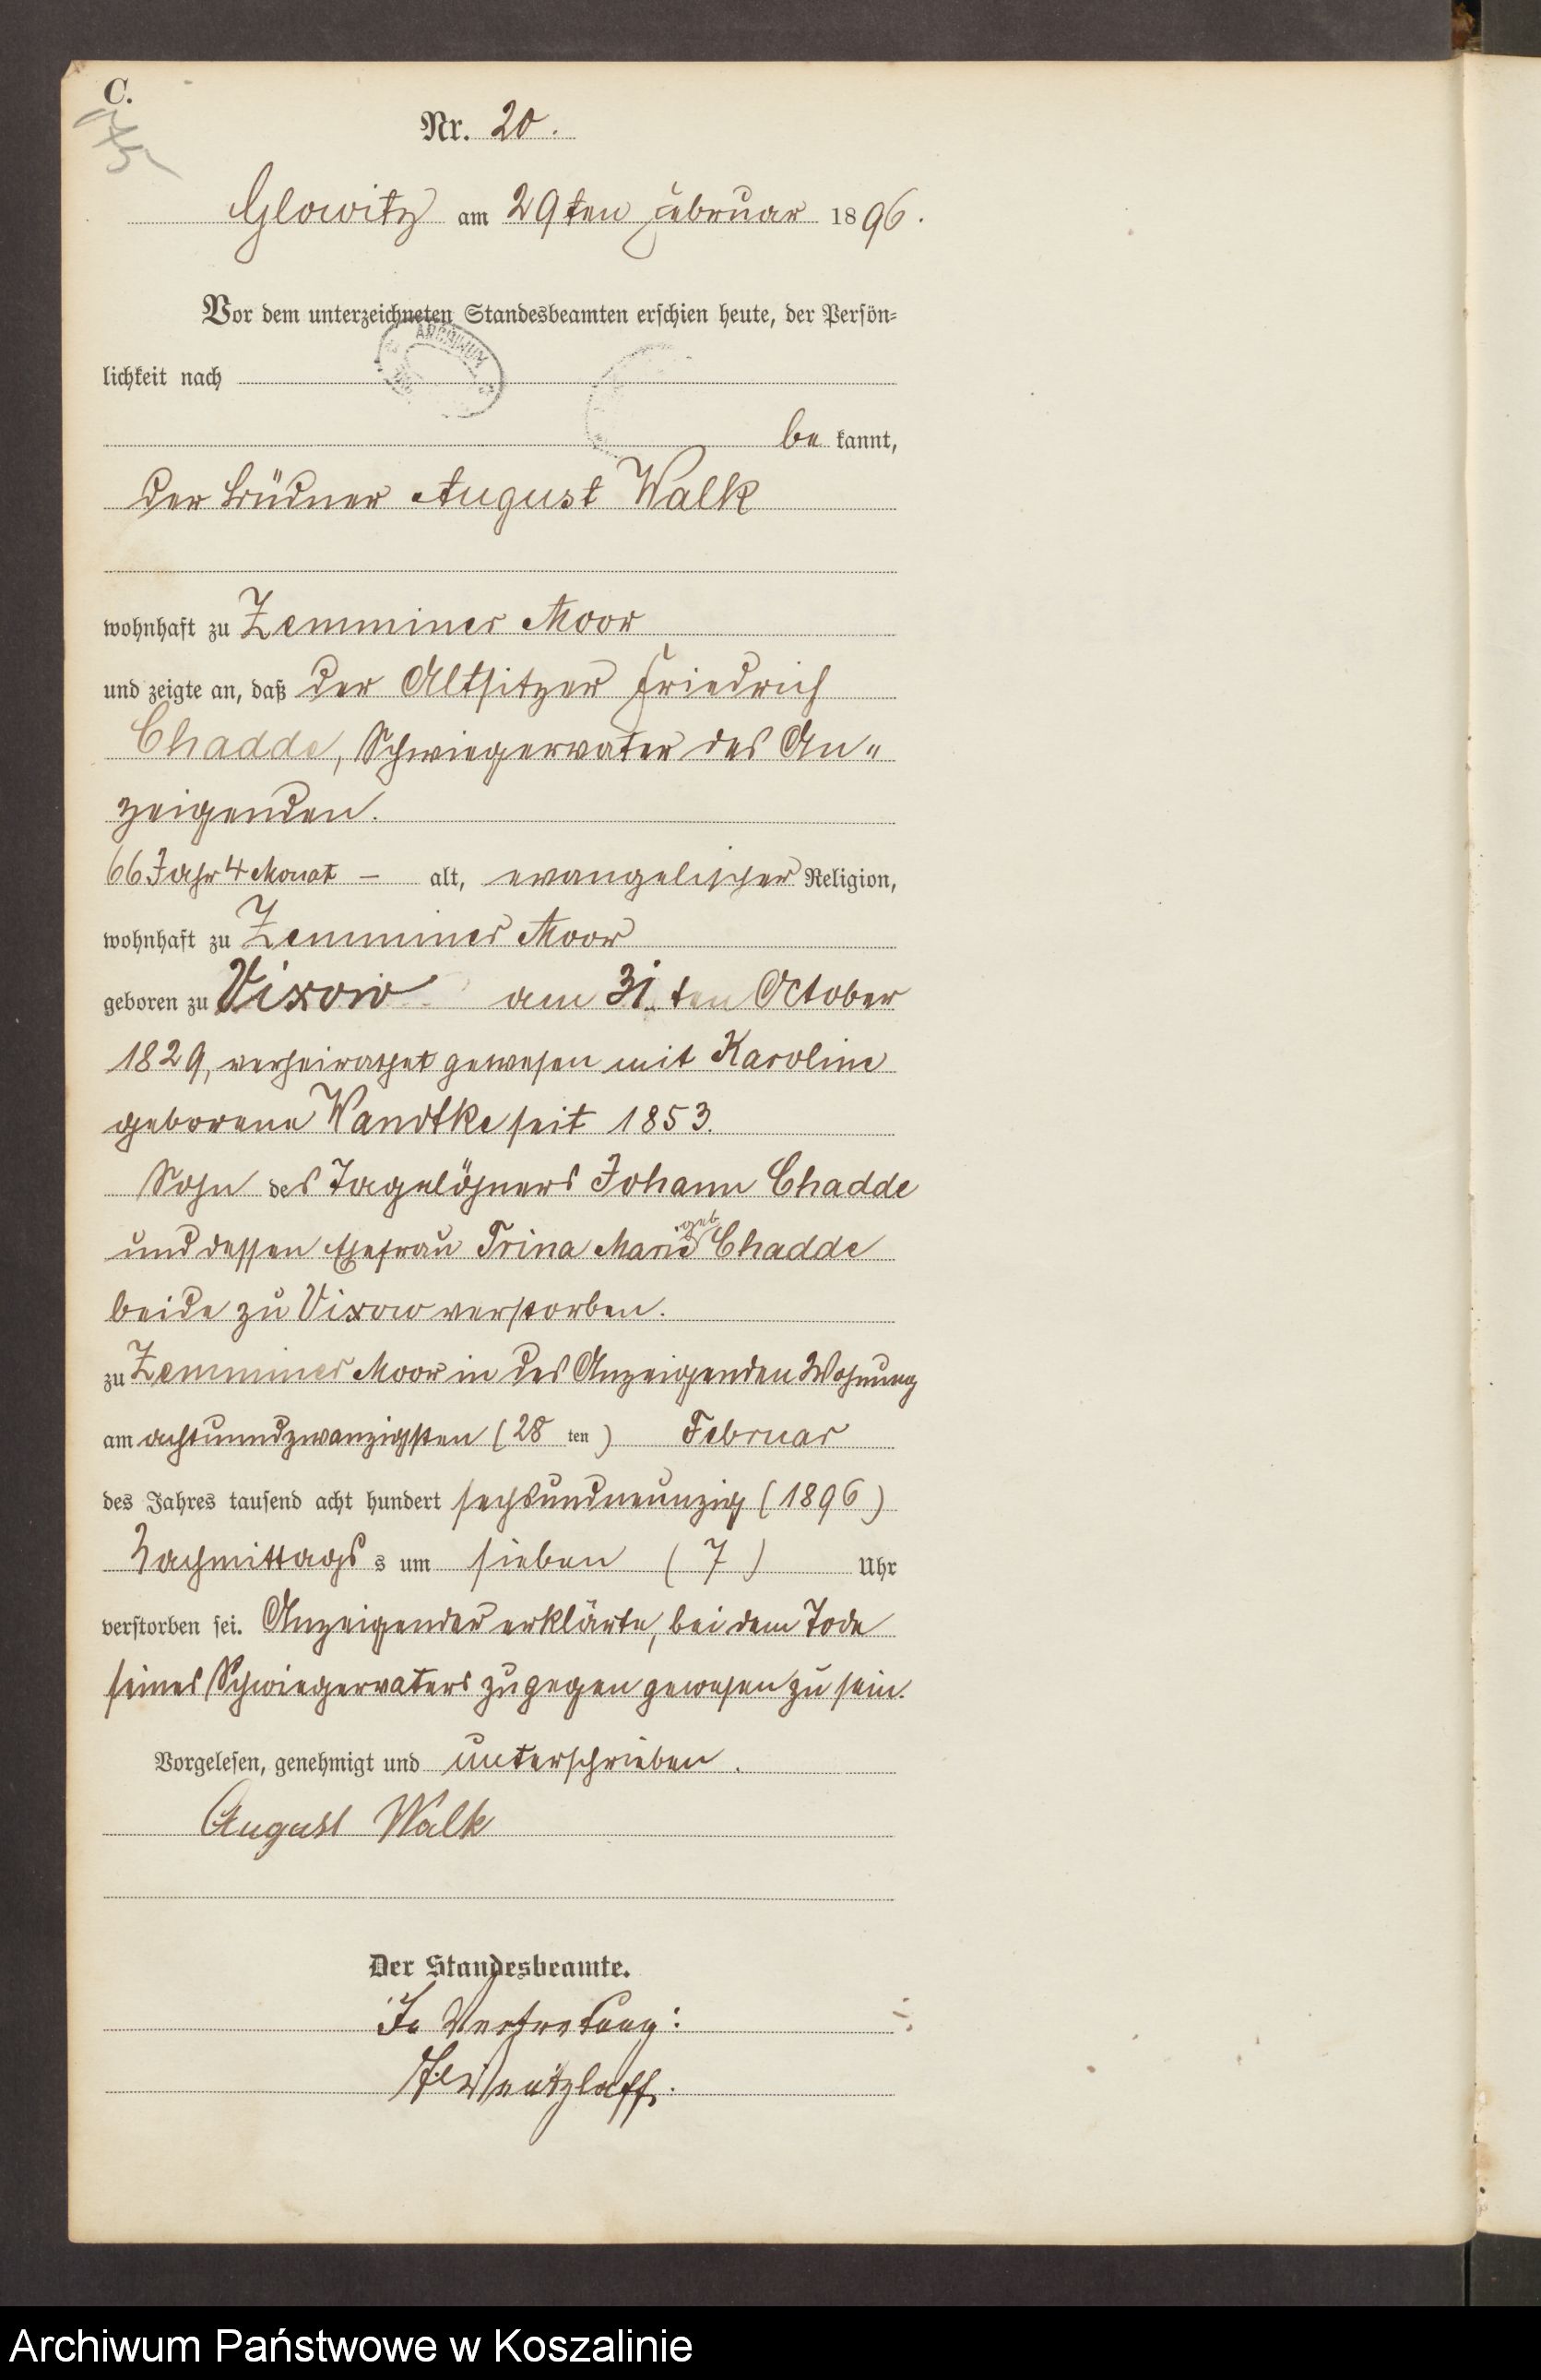 C.
Nr. 20.
Glowitz am 29ten Februar 1896.
Vor dem unterzeichneten Standesbeamten erschien heute, der Persön=
lichkeit nach
ARCHIWUM
be kannt,
der Büdner August Walk
wohnhaft zu Zemminer Moor
und zeigte an, daß der Altsitzer Friedrich
Chadde, Schwiegervater des An„
zeigenden.
66 Jahr 4 Monat – alt, evangelischer Religion,
wohnhaft zu Zemminer Moor
geboren zu Vixow am 31ten October
1829, verheirathet gewesen mit Karoline
geborene Wandtke seit 1853.
Sohn des Tagelöhners Johann Chadde
und dessen Ehefrau Trina Marie geb Chadde
beide zu Vixow verstorben.
zu Zemminer Moor in des Anzeigenden Wohnung
am achtunndzwanzigsten (28 ten) Februar
des Jahres tausend acht hundert sechsundneunzig (1896)
Nachmittags s um sieben (7) Uhr
verstorben sei. Anzeigender erklärte, bei dem Tode
seines Schwiegervaters zugegen gewesen zu sein.
Vorgelesen, genehmigt und unterschrieben.
August Walk
Der Standesbeamte.
In Vertretung:
Archiwum Państwowe w Koszalinie